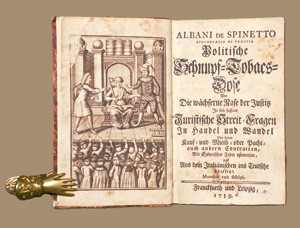 ALBANI DE SPINETTO
Politische
Schnupf-Tobacs-
Dose
Oder
Die wächserne Nase der Justitz
In sich haltend
Juristische Streit-Fragen
In Handel und Wandel
Kauf- und Mieth- oder Pacht-
auch andern Contracten,
Mit Satyrischer Feder
Aus dem Italiänischen ins Teutsche
Franckfurth und Leipzig,
1739.